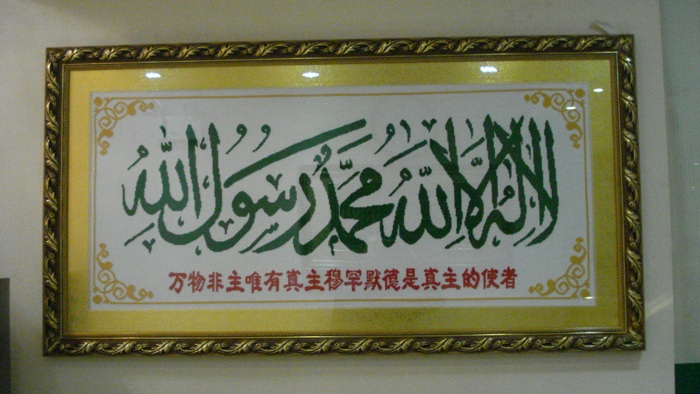 لا اله الا الله محمد رسول الله
万物非主唯有真主穆罕默德是真主的使者